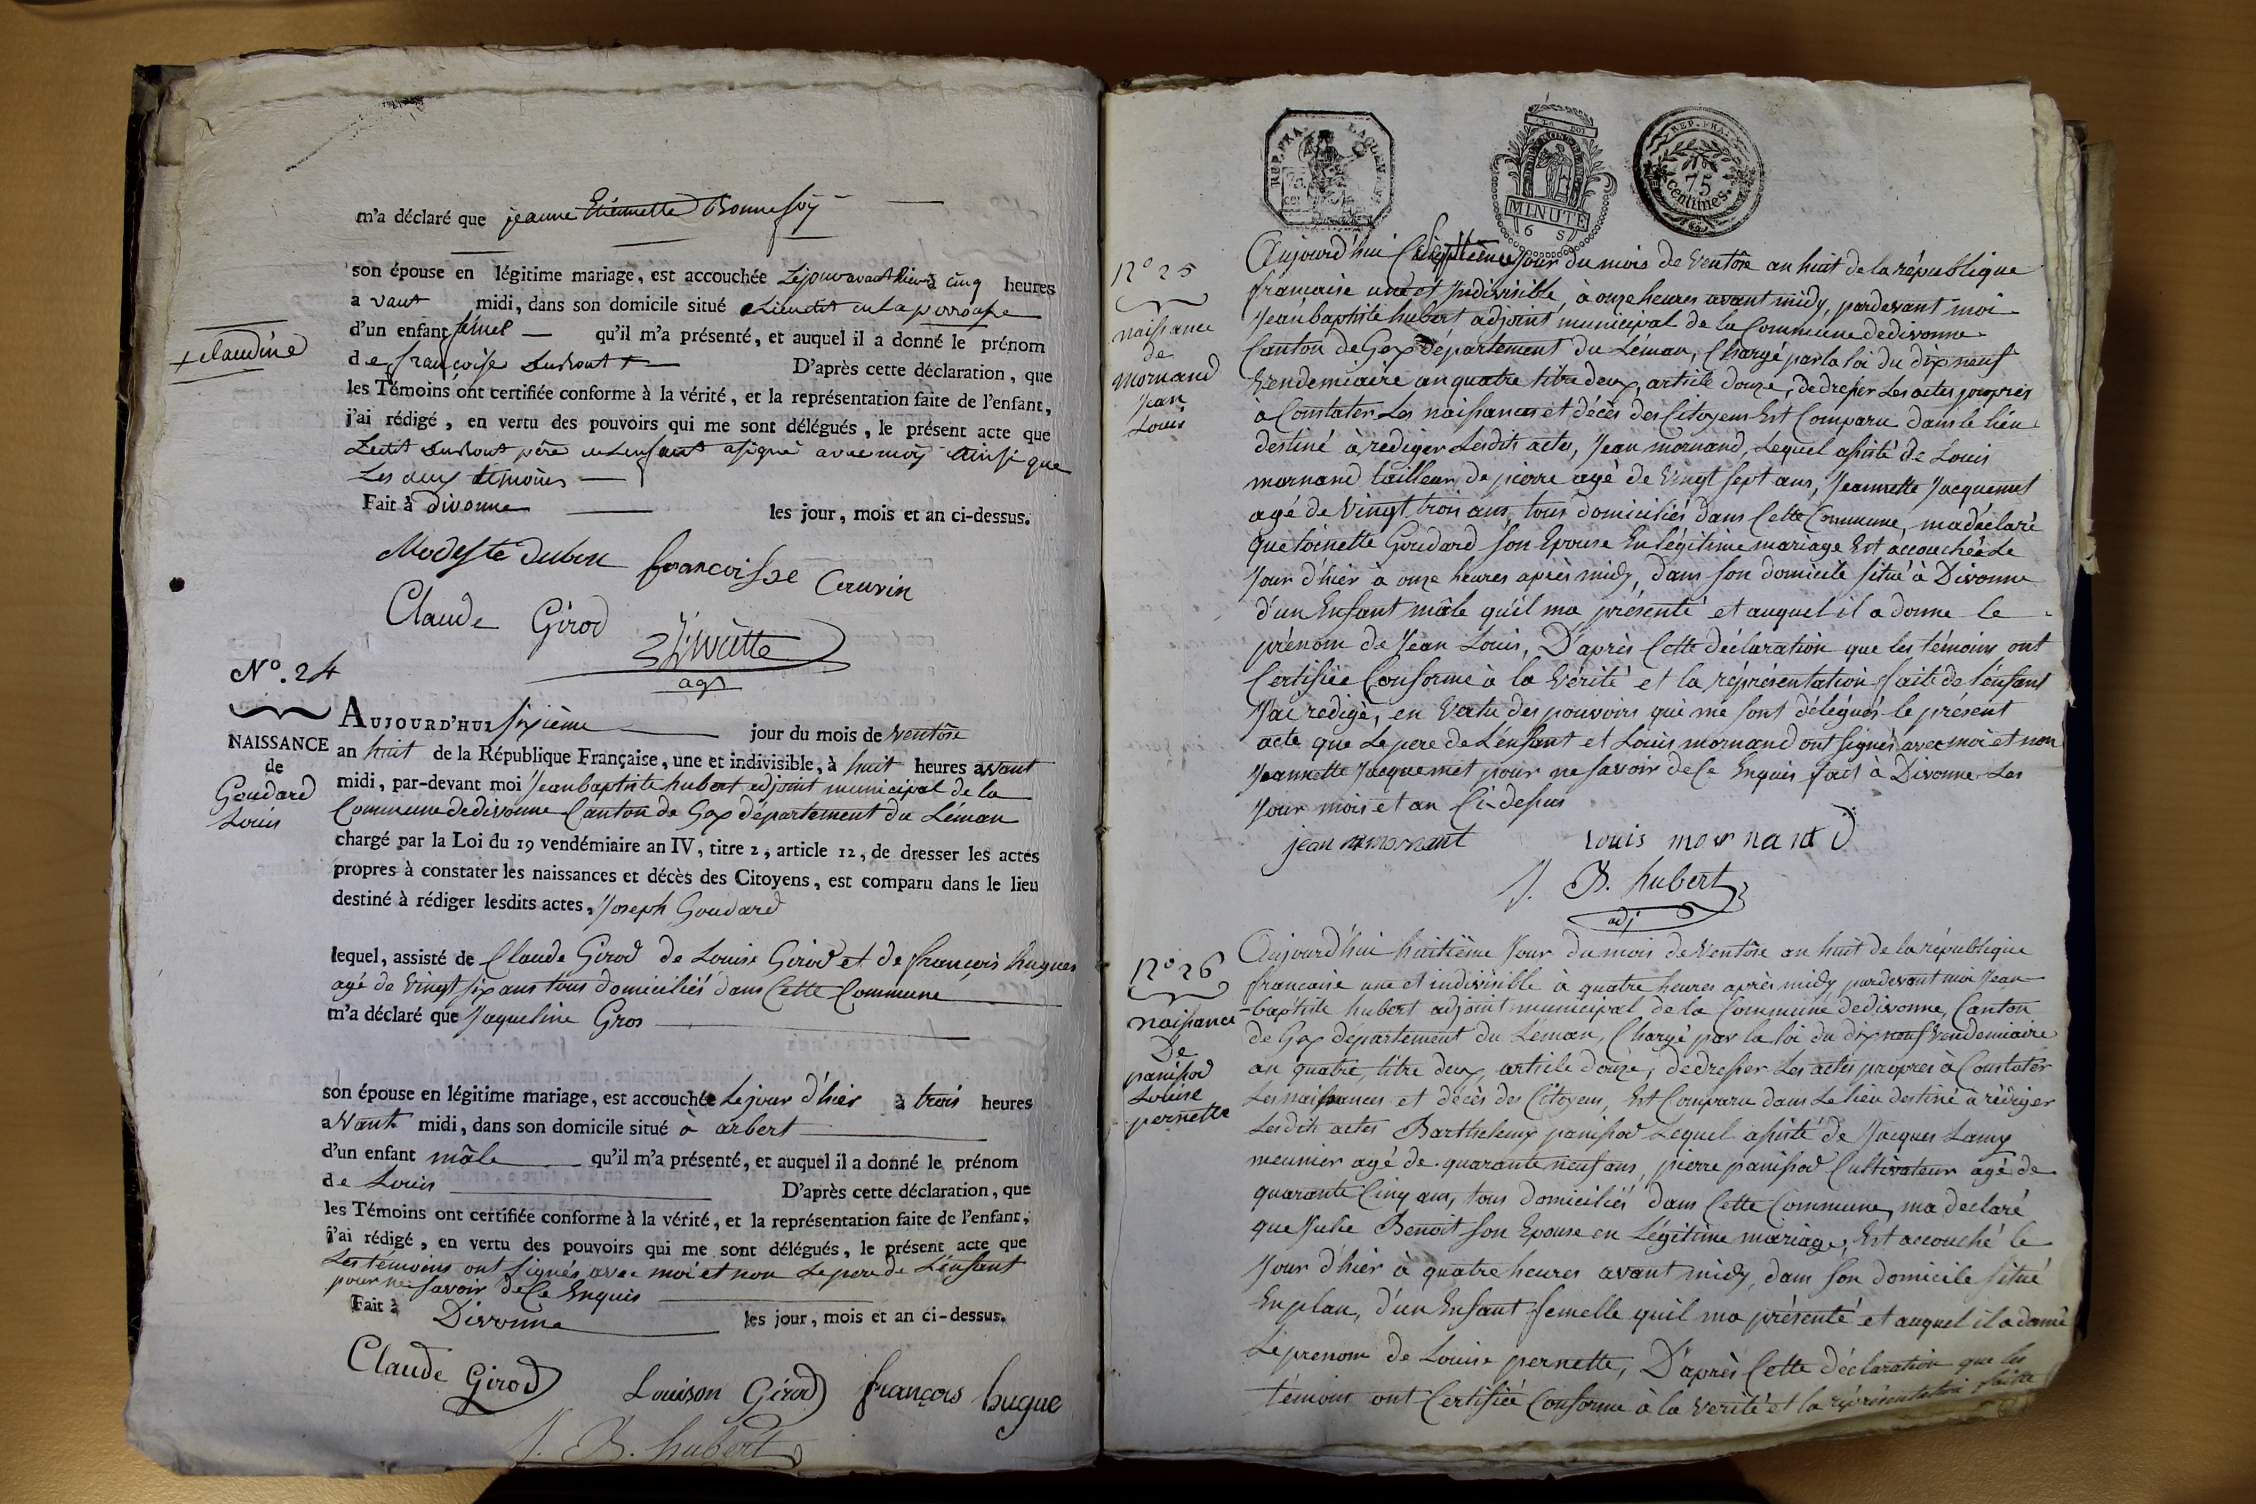 m'a déclaré que jeanne Etiennette Bonnefoy
son épouse en légitime mariage, est accouchée Le jour avant hier à cinq heures
avant midi, dans son domicile situé
d'un enfant femel qu'il m'a présenté, et auquel il a donné le prénom
+ claudine
de françoise + D'après cette déclaration, que
les Témoins ont certifiée conforme à la vérité, et la représentation faite de l'enfant,
j'ai rédigé, en vertu des pouvoirs qui me sont délégués, le présent acte que
Ledit père a signé avec moy ainsi que
Les deux témoins
Fait à divonne les jour, mois et an ci-dessus.
Modeste francoisse
Claude Girod
agt
N°. 24
NAISSANCE
de
Goudard
Louis
AUJOURD'HUI sixième jour du mois de ventôse
an huit de la République Française, une et indivisible, à huit heures avant
midi, par-devant moi Jean baptiste hubert adjoint municipal de la
Commune dedivonne Canton de Gex département du Léman
chargé par la Loi du 19 vendémiaire an IV, titre 2, article 12, de dresser les actes
propres à constater les naissances et décès des Citoyens, est comparu dans le lieu
destiné à rédiger lesdits actes, Joseph Goudard
lequel, assisté de Claude Girod de Louise Girod et de françois hugues
agé de Vingt six ans tous domiciliés dans Cette Commune
m'a déclaré que Jaqueline Gros
son épouse en légitime mariage, est accouchée Le jour d'hier à trois heures
avant midi, dans son domicile situé à arbert
d'un enfant mâle qu'il m'a présenté, et auquel il a donné le prénom
de Louis D'après cette déclaration, que
les Témoins ont certifiée conforme à la vérité, et la représentation faite de l'enfant,
j'ai rédigé, en vertu des pouvoirs qui me sont délégués, le présent acte que
Les témoins ont signés avec moi et non Le pere de L'enfant
pour ne savoir de Ce Enquis
Fait à Divonne les jour, mois et an ci-dessus.
Claude Girod Louison Girod françois hugue
J. B. hubert
REP. FRA.
MINUTE
REP. FRA.
75
centimes
N° 25
naissance
de
mornand
Jean
Louis
Aujourd'hui septième Jour du mois de Ventôse an huit de la république
francaise une et Indivisible, à onze heures avant midy, pardevant moi
Jean baptiste hubert adjoint municipal de la Commune dedivonne
Canton de Gex département du Léman, Chargé par la loi du dix neuf
Vendemiaire an quatre titre deux, article douze, de dresser Les actes propres
a Constater Les naissances et décès des Citoyens Est Comparu dans le lieu
destiné à rediger Lesdits actes, Jean mornand, Lequel assisté de Louis
mornand tailleur de pierre agé de Vingt sept ans, Jeannette Jacquemet
agé de Vingt trois ans, tous domiciliés dans Cette Commune, ma déclaré
que toinette Goudard son Epouse En légitime mariage Est accouchée Le
Jour d'hier à onze heures après midy, dans son domicile situé à Divonne
d'un Enfant mâle qu'il ma présenté et auquel il a donne le
prénom de Jean Louis, D'après Cette déclaration que les témoins ont
Certifiée Conforme à la Vérité et la réprésentation faite de l'enfant
J'ai redigé, en Vertu des pouvoirs qui me sont délégués le présent
acte que Le pere de L'enfant et Louis mornand ont signés avec moi et non
Jeannette Jacquemet pour ne savoir de Ce Enquis fait à Divonne Les
Jour mois et an Ci-dessus
jean mornant louis mornand
J. B. hubert
adj
N° 26
naissance
De
panissod
Louise
pernette
Aujourd'hui huitième Jour du mois de Ventôse an huit de la république
francaise une et indivisible à quatre heures après midy pardevant moi Jean
-baptiste hubert adjoint municipal de la Commune dedivonne, Canton
de Gex département du Léman, Chargé par la loi du dix neuf Vendemiaire
an quatre, titre deux, article douze, de dresser Les actes propres à Constater
Les naissances et décès des Citoyens, Est Comparu dans Le lieu destiné à rédiger
Lesdits actes Barthelemy panissod Lequel assisté de Jacques Lamy
meunier agé de quarante neuf ans, pierre panissod Cultivateur agé de
quarante Cinq ans, tous domiciliés dans Cette Commune, ma declaré
que Julie Benoit son Epouse en Légitime mariage, Est accouché le
Jour d'hier à quatre heures avant midy, dans son domicile situé
En plan, d'un Enfant femelle quil ma présenté et auquel il a donné
Le prenom de Louise pernette, D'après Cette déclaration que les
témoins ont Certifiée Conforme à la Verité et la réprésentation faite